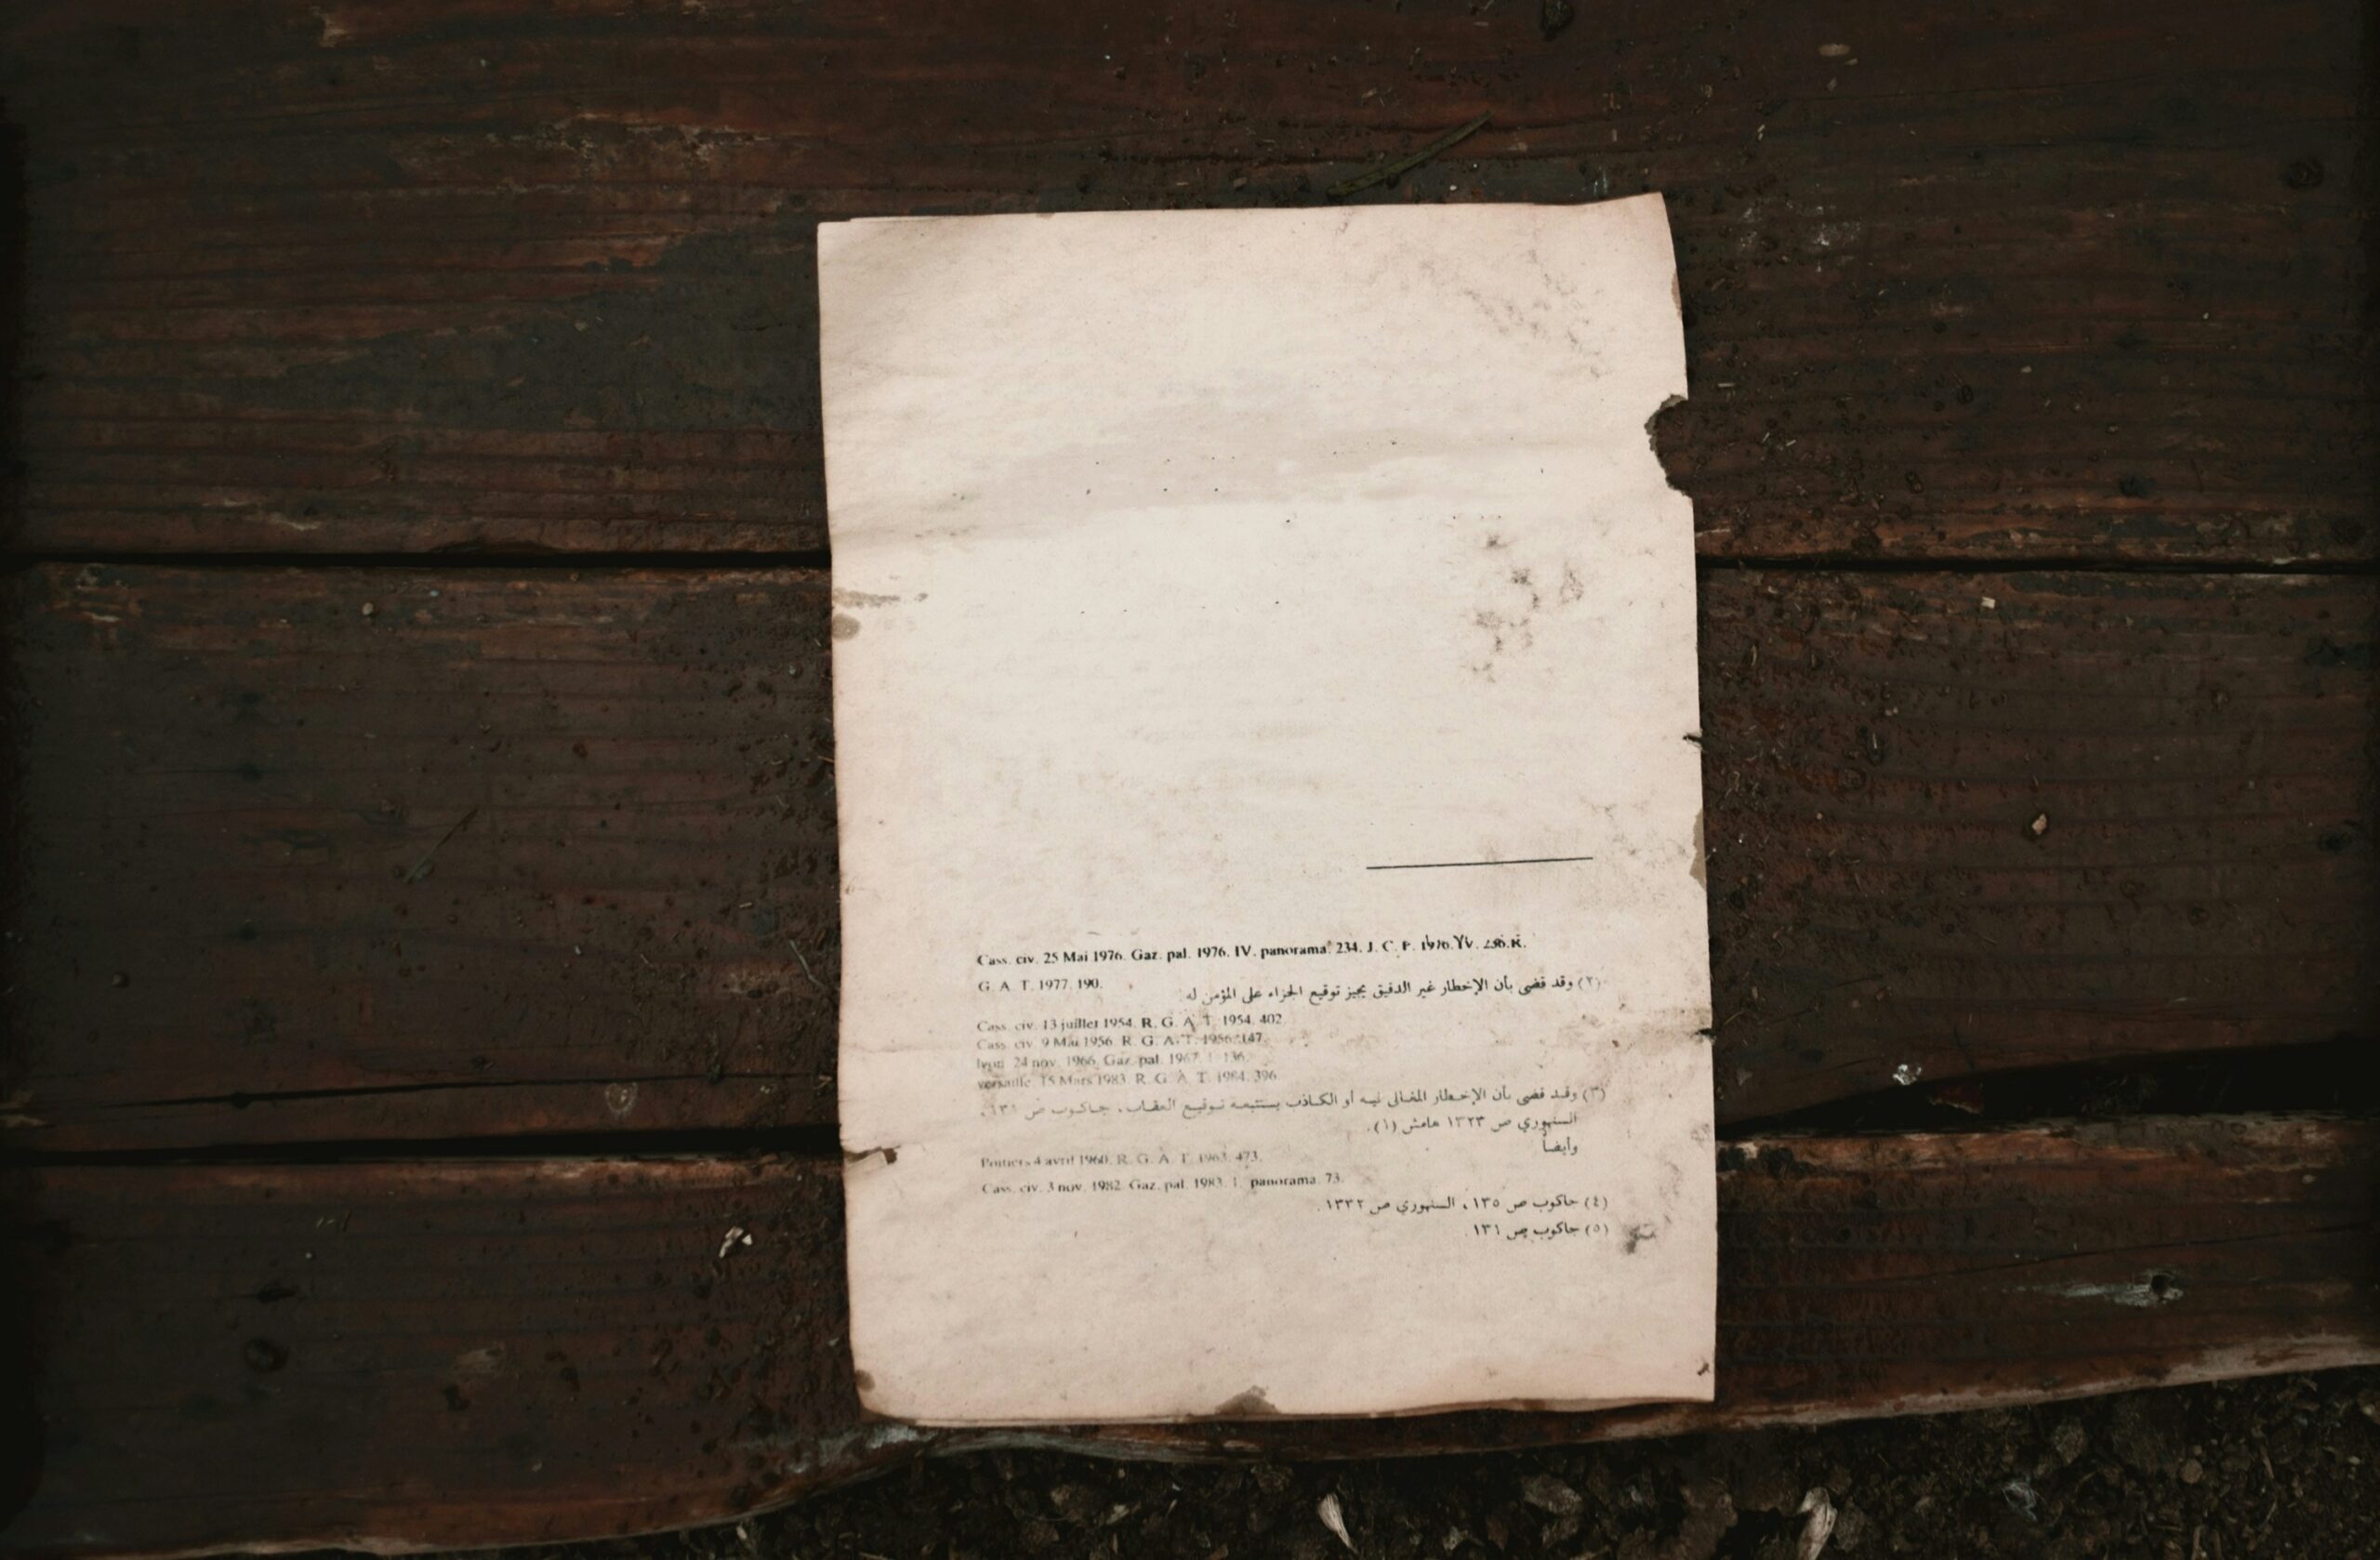 Cass. civ. 25 Mai 1976. Gaz. pal. 1976. IV. panorama. 234. J. C. P. 1976. IV. 236. R.
G. A. T. 1977. 190.
(٢) وقد قضى بأن الإخطار غير الدقيق يجيز توقيع الجزاء على المؤمن له
Cass. civ. 13 juillet 1954. R. G. A. T. 1954. 402
Cass. civ. 9 Mai 1956. R. G. A. T. 1956. 147
lyon 24 nov. 1966. Gaz. pal. 1967. 1. 136.
versaille. 15 Mars 1983. R. G. A. T. 1984. 396
(٣) وقد قضى بأن الإخطار المغالى فيه أو الكاذب يستتبعه توقيع العقاب، جاكوب ص ١٣١،
السنهوري ص ١٣٢٣ هامش (١).
وأيضاً
Poitiers 4 avril 1960. R. G. A. T. 1963. 473.
Cass. civ. 3 nov. 1982. Gaz. pal. 1983. 1. panorama. 73.
(٤) جاكوب ص ١٣٥، السنهوري ص ١٣٣٢.
(٥) جاكوب ص ١٣١